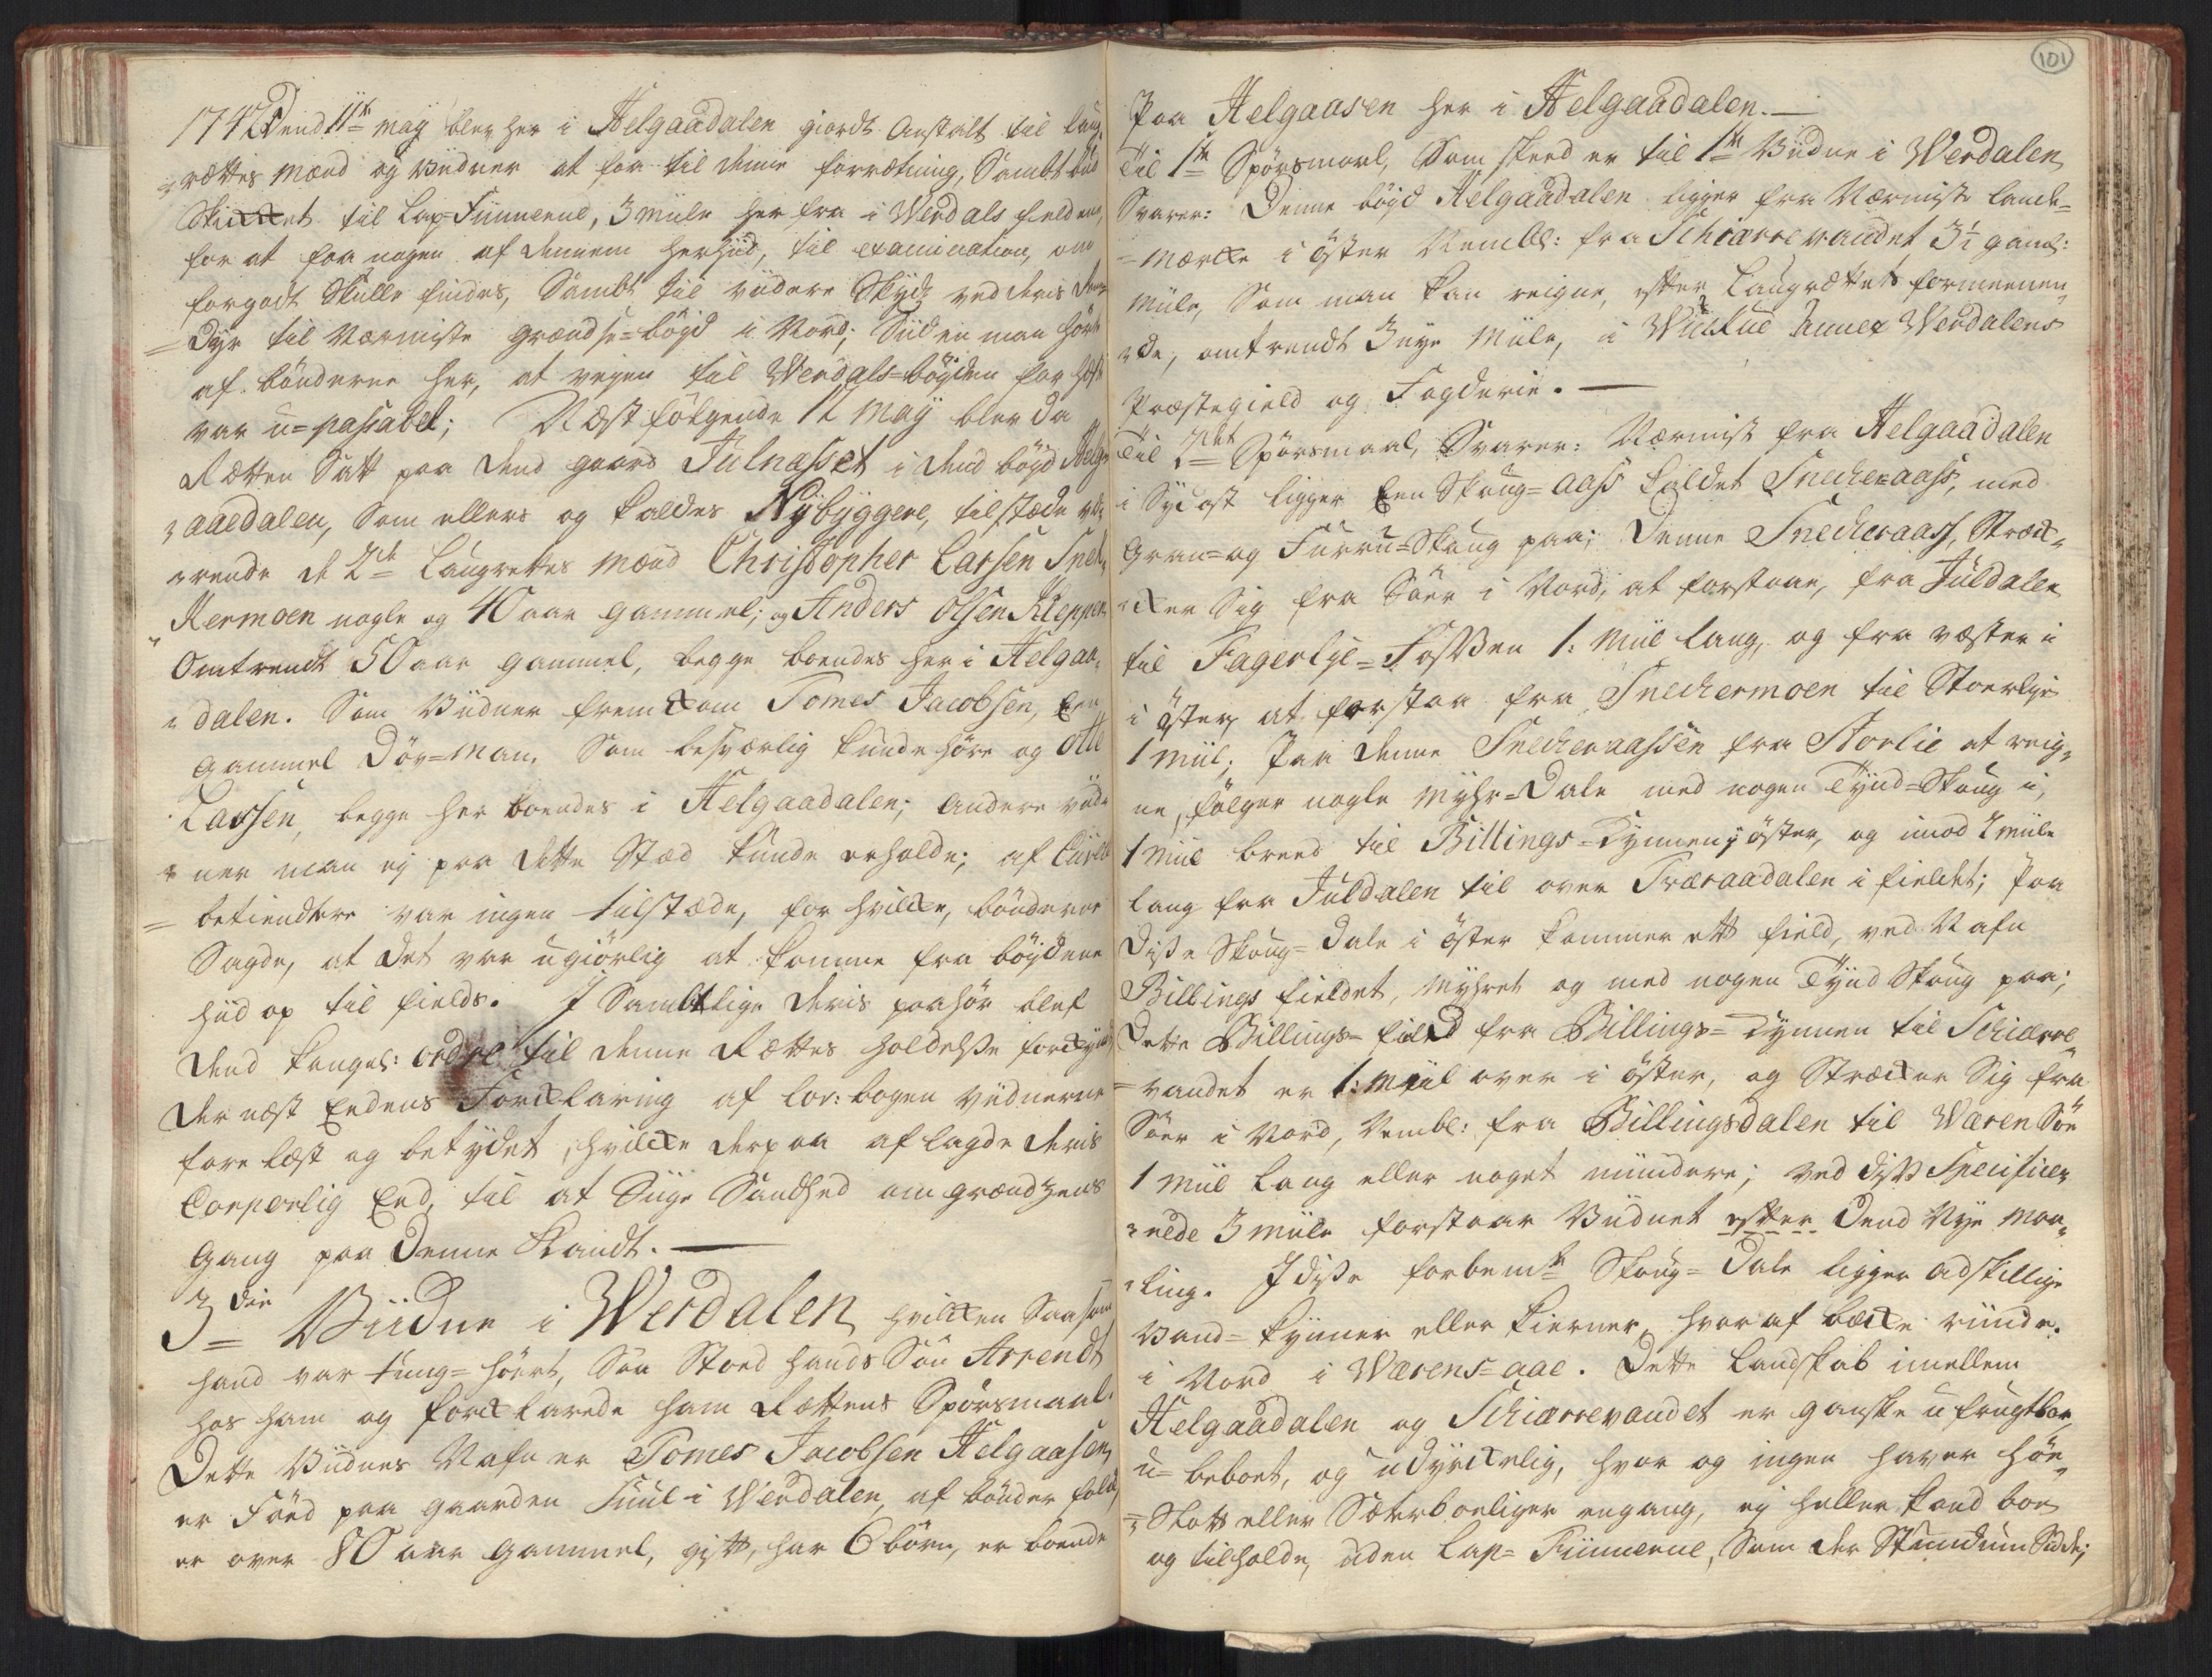 1742 Dend 11te maÿ blev her i Helgaadalen giordt anstalt til laug-
=rettes mænd og Vidner at faa til denne forrætning, Sambt bud
Skicket til Lap-Finnerne, 3 miile her fra i Werdals fieldene,
for at faa nogen af dennem herhid, til examination, om
forgodt Skulle findes, Sambt til videre Skyds ved deris
=Dyr til Nærmiste Grændse-bøÿd i Nord, Siden man hørte
af bønderne her, at veÿen til Werdals-bøÿden for heste
var u-passabel; Næstfølgende 12 maÿ blev da
Retten Satt paa dend gaard Julnæsset i dend bøÿd Helg-
=aaedalen, Som ellers og kaldes Nÿbÿggere, tilstæde væ-
=rende de 2de Laugrettes mænd Christopher Larsen Snek-
=kermoen nogle og 40 aar gammel; og Anders Olsen Kleppen
Omtrendt 50 aar gammel, begge boendes her i Helgaa-
=dalen. Som Vidner fremkom Tomes Jacobsen, Een
gammel Døv-man, Som besværlig kunde høre og Olle
Larsen, begge her boendes i Helgaadalen; Andere vid-
=ner man eÿ paa dette Stæd kunde erholde; af Civile
=betiendtere var ingen tilstæde, for hvilke, bønderne
Sagde, at det var ugiørlig at komme fra bøÿdene
hid op til fields. I Sambtlige deris paahør blef
dend kongel: ordre til denne Rettes holdelse forkÿndt
der næst Eedens Forklaring af lov:bogen vidnerne
forelæst og betÿdet, hvilke derpaa aflagde deris
Corporlig Eed, til at Sige Sandhed om grændsens
gang paa denne kandt.
3die Viidne i Werdalen hvilken Saasom
hand var tung-hørt, Saa Stoed hands Søn Arrendt
hos ham og forklarede ham Rettens Spørsmaal.
Dette Vidnes Nafn er Tomes Jacobsen Helgaasen,
er Fød paa gaarden Suul i Werdalen, af bønder folck,
er over 80 aar gammel, gift, har 6 børn, er boende
101
Paa Helgaasen her i Helgaadalen.
Til 1te Spørsmaal, Som skeed er til 1te Vidne i Werdalen
Svarer: Denne bøÿd Helgaadalen ligger fra Nærmiste lande-
=mærcke i øster Nembl: fra Schiærrevandet 3½ gaml:
miile, Som man kan reigne, efter Laugrettets formeenen-
=de, omtrendt 3 nÿe miile, i Wuckue Annex Werdalens
Præstegield og Fogderie.
Til 2det Spørsmaal, Svarer: Nærmist fra Helgaadalen
i Sÿdost ligger Een Skoug-aass kaldet Sneckeraass, med
Gran- og Furru-Skoug paa; Denne Sneckeraass, Stræck-
=ker Sig fra Sør i Nord, at forstaae, fra Juldalen
til Fagerlie-Fossen 1: miil lang, og fra væster i
i øster, at forstaa fra Sneckermoen til Stoerlie
1 miil; Paa denne Sneckeraassen fra Storlie at reig-
ne, følger nogle Mÿhr-Dale med nogen Tÿnd-Skoug i,
1 miil breed til Billings-Kynnen i øster, og imod 2 miile
lang fra Juldalen til over Træraadalen i fieldet; Paa
disse Skoug-Dale i øster kommer ett field, ved Nafn
Billings fieldet, mÿhret og med nogen Tÿnd Skoug paa;
Dette Billings-field fra Billings-Kynnen til Schiærre-
=vandet er 1: miil over i øster, og Strækker Sig fra
Sør i Nord, Nembl: fra Billingsdalen til Wæren Søe
1 miil lang eller noget mindere; ved disse Specificer-
=rede 3 miile forstaar Vidnet efter Dend Nÿe Maa-
=ling. I disse forbemte Skoug-Dale ligger adskillige
Vand-kynner eller kierner, hvoraf bække rinder
i Nord i Wærens-aae. Dette Landskab imellem
Helgaadalen og Schiærrevandet er ganske ufrugtbar
u-beboet, og udyrkelig, hvor og ingen haver høe-
=Slott eller Sæterboeliger engang, eÿ heller kand boe
og tilholde, uden Lap-Finnerne, Som der Stundum Sidde;